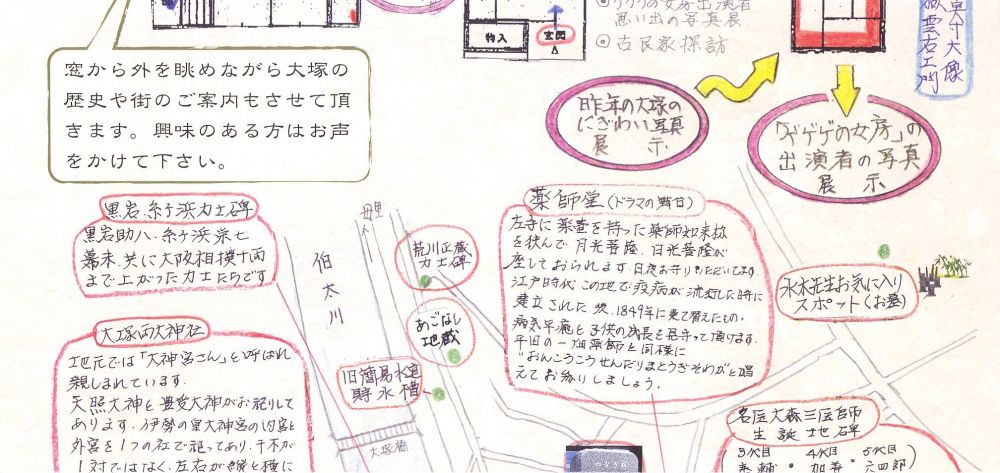 物入
玄関
思い出の写真展
古民家探訪
窓から外を眺めながら大塚の
歴史や街のご案内もさせて頂
きます。興味のある方はお声
をかけて下さい。
昨年の大塚の
にぎわい写真
展 示
「ゲゲゲの女房」の
出演者の写真
展 示
黒岩・糸ヶ浜力士碑
黒岩助八・糸ヶ浜栄七
幕末、共に大阪相撲十両
まで上がった力士たちです
大塚両大神社
地元では「大神宮さん」と呼ばれ
親しまれています.
天照大神と豊受大神がお祀りして
あります.伊勢の皇大神宮の内宮と
外宮を1つの社で祀ってあり、千木が
1対ではなく、左右が縦と横に
伯太川
母里
荒川正蔵
力士碑
あごなし
地蔵
旧簡易水道
貯水槽
大塚橋
薬師堂(ドラマの舞台)
左手に薬壷を持った薬師如来故
を挟んで月光菩薩、日光菩薩が
座しておられます.日夜お守りいただいてます.
江戸時代この地で疫病が流行した時に
建立された後、1849年に建て替えたもの.
病気平癒と子供の成長を見守って頂けます.
平田の一畑薬師と同様に
"おんころころせんだりまとうぎそわか"と唱
えてお参りしましょう.
水木先生お気に入り
スポット(お墓)
名医大森三医師
生誕地碑
3代目 4代目 5代目
泰輔・加善・六四郎